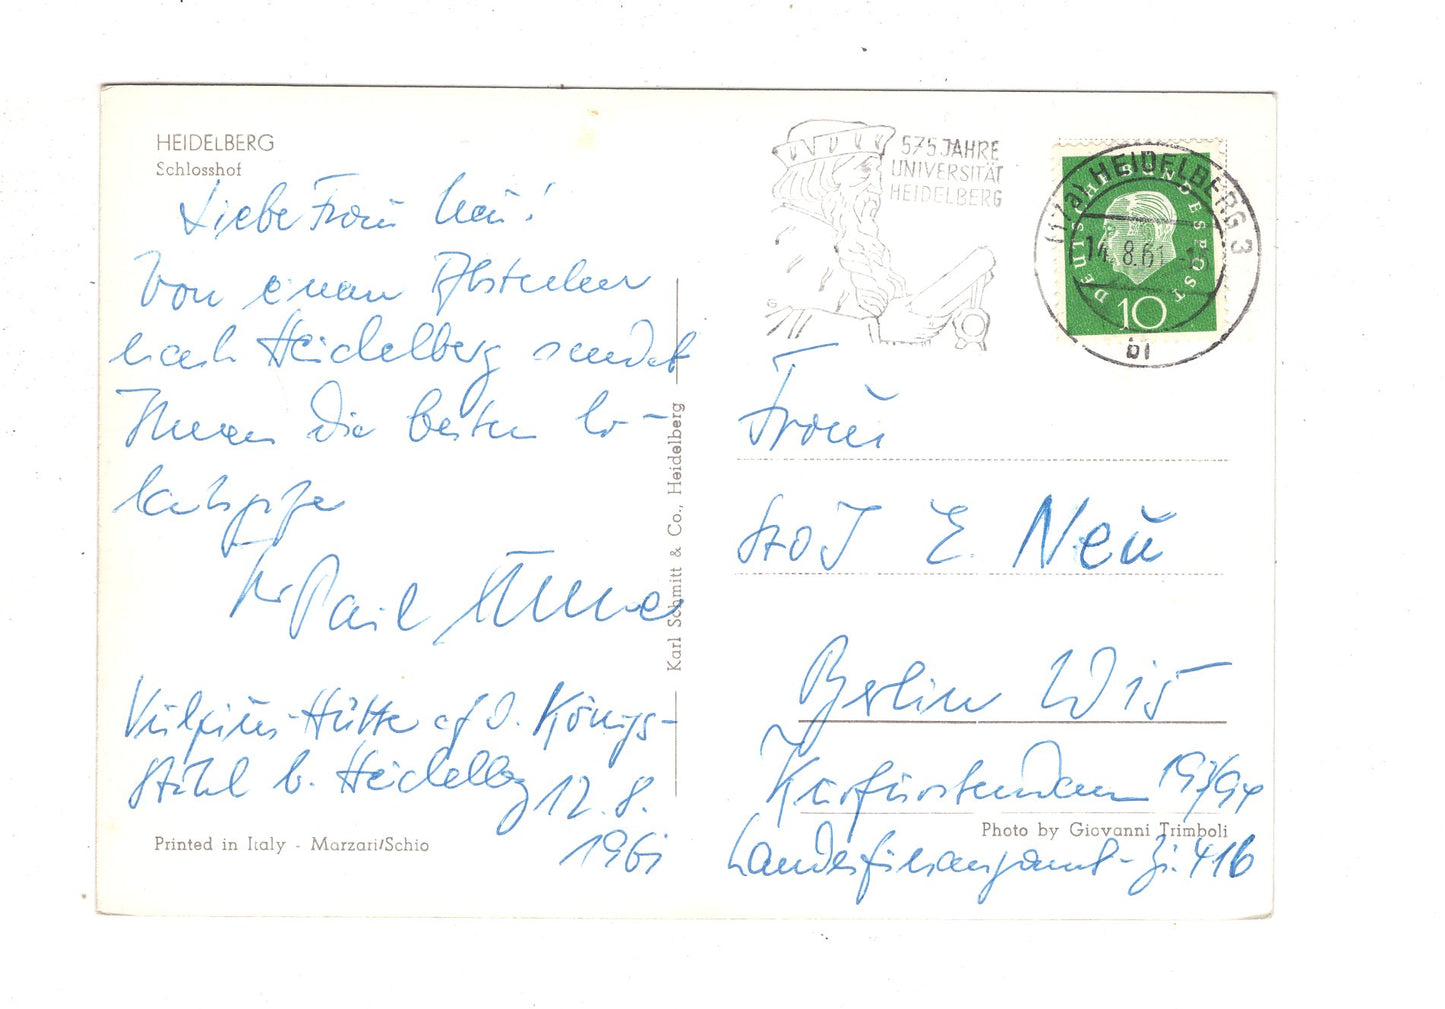 HEIDELBERG
Schlosshof
Liebe Frau Neu!
Von einem Abstecher
nach Heidelberg sendet
Ihnen die besten Ur-
laubsgrüße
Ihr Paul
Vulpius-Hütte a/d. König-
stuhl b. Heidelbg 12.8.
1961
Printed in Italy - Marzari/Schio
Karl Schmitt & Co., Heidelberg
575 JAHRE
UNIVERSITÄT
HEIDELBERG
(17a) HEIDELBERG 3
14.8.61
bi
DEUTSCHE BUNDESPOST
10
Frau
E. Neu
Berlin W 15
Kurfürstendamm 193/94
Photo by Giovanni Trimboli
Landesfinanzamt - Zi. 416